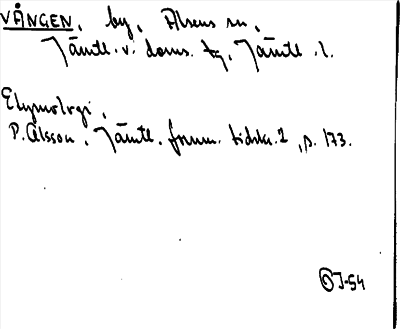 VÅNGEN, by, Alsens sn,
Jämtl. v. doms. tg, Jämtl. l.
Etymologi,
P. Olsson, Jämtl. fornm. tidskr. 2, s. 173.
OJ-54